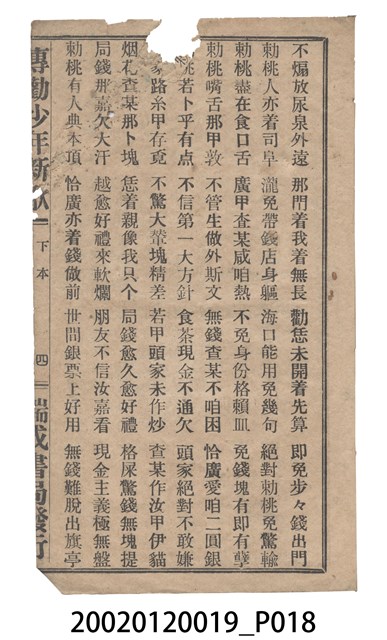 不煽放尿泉外遠 那門着我着無長 勸恁未開着先算 即免步々錢出門
勅桃人亦着司阜 瀧免帶錢店身軀 海口能用免幾句 絕對勅桃免驚輸
勅桃盡在食口舌 廣甲查某咸咱熱 不免身份格賴皿 免錢塊有即有孽
勅桃嘴舌那甲敦 不管生做外斯文 無錢查某不咱困 恰廣愛咱二圓銀
桃若卜乎有点 不信第一大方針 食茶現金不通欠 頭家絕對不敢嫌
路糸甲存覔 不驚大塋塊精差 若甲頭家未作炒 查某作汝甲伊貓
烟花查某那卜塊 恁着親像我只个 局錢愈久愈好禮 格屎驚錢無塊提
局錢那嘉欠大汗 越愈好禮來軟爛 朋友不信汝嘉看 現金主義極無盤
勅桃有人典本項 恰廣亦着錢做前 世間銀票上好用 無錢難脫出旗亭
專勸少年新歌 下本 四 瑞成書局發行
20020120019_P018